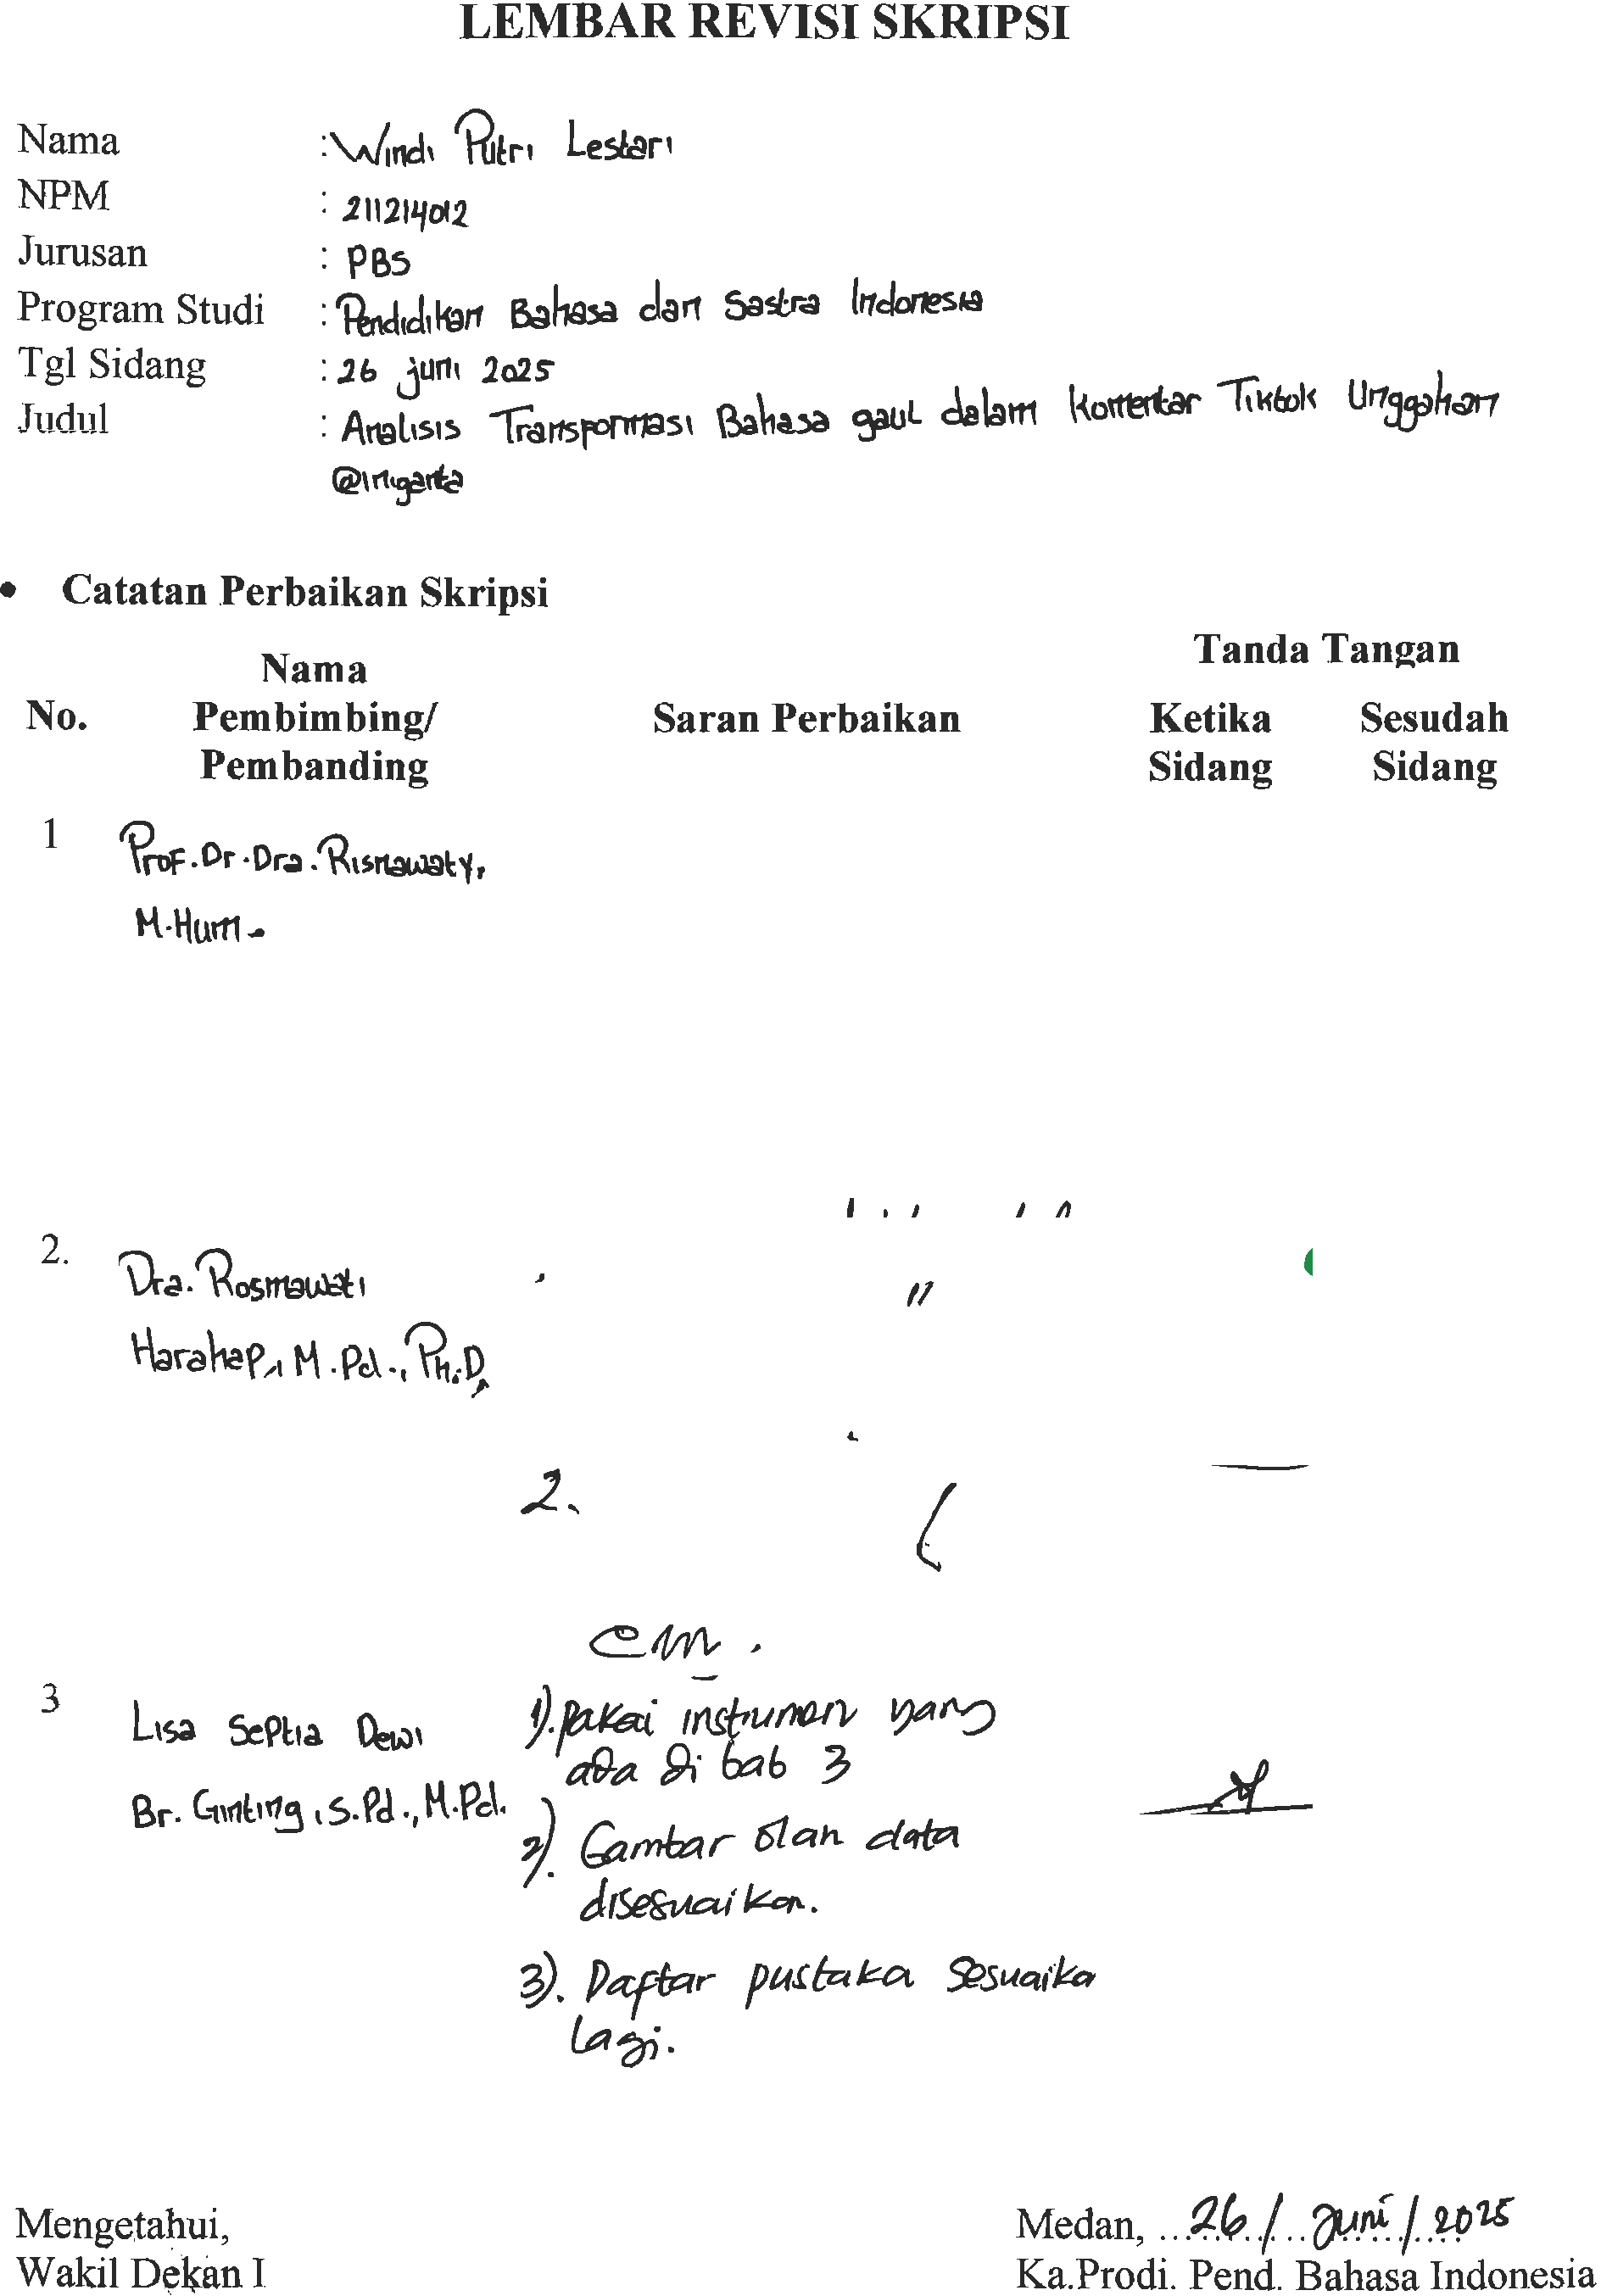 LEMBAR REVISI SKRIPSI
Nama : Windi Putri Lestari
NPM : 211214012
Jurusan : PBS
Program Studi : Pendidikan Bahasa dan Sastra Indonesia
Tgl Sidang : 26 juni 2025
Judul : Analisis Transformasi Bahasa gaul dalam Komentar Tiktok Unggahan
@inigarta
• Catatan Perbaikan Skripsi
Tanda Tangan
Nama
No. Pembimbing/ Saran Perbaikan Ketika Sesudah
Pembanding Sidang Sidang
1 Prof. Dr. Dra. Rismawaty,
M.Hum.
2. Dra. Rosmawati
Harahap, M.Pd., Ph.D,
2.
3 Lisa Septia Dewi 1). pakai instrumen yang
ada di bab 3
Br. Ginting, S.Pd., M.Pd.
2). Gambar olah data
disesuaikan.
3). Daftar pustaka sesuaika
lagi.
Mengetahui, Medan, 26 / Juni / 2025
Wakil Dekan I Ka.Prodi. Pend. Bahasa Indonesia